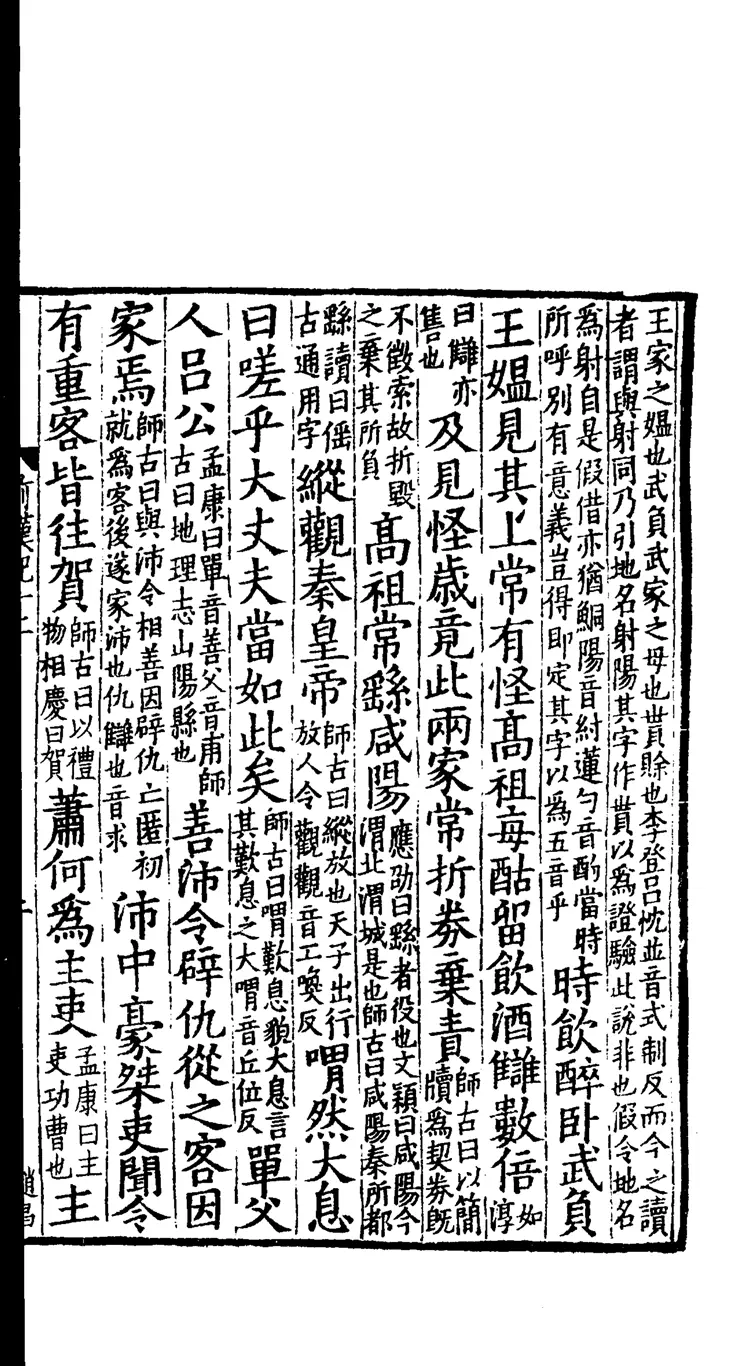 王家之媼也武負武家之母也貰賖也李登吕忱並音式制反而今之讀
者謂與射同乃引地名射陽其字作貰以爲證驗此說非也假令地名
爲射自是假借亦猶鮦陽音紂蓮勺音酌當時
所呼別有意義豈得即定其字以爲五音乎
時飲醉卧武負
王媼見其上常有怪髙祖每酤留飲酒讎數倍
如
淳
曰讎亦
售也
及見怪歲竟此兩家常折券棄責
師古曰以簡
牘爲契券旣
不徵索故折毀
之棄其所負
髙祖常繇咸陽
應劭曰繇者役也文穎曰咸陽今
渭北渭城是也師古曰咸陽秦所都
繇讀曰傜
古通用字
縱觀秦皇帝
師古曰縱放也天子出行
放人令觀觀音工喚反
喟然大息
曰嗟乎大丈夫當如此矣
師古曰喟歎息貌大息言
其歎息之大喟音丘位反
單父
人吕公
孟康曰單音善父音甫師
古曰地理志山陽縣也
善沛令辟仇從之客因
家焉
師古曰與沛令相善因辟仇亡匿初
就爲客後遂家沛也仇讎也音求
沛中豪桀吏聞令
有重客皆往賀
師古曰以禮
物相慶曰賀
蕭何爲主吏
孟康曰主
吏功曹也
主